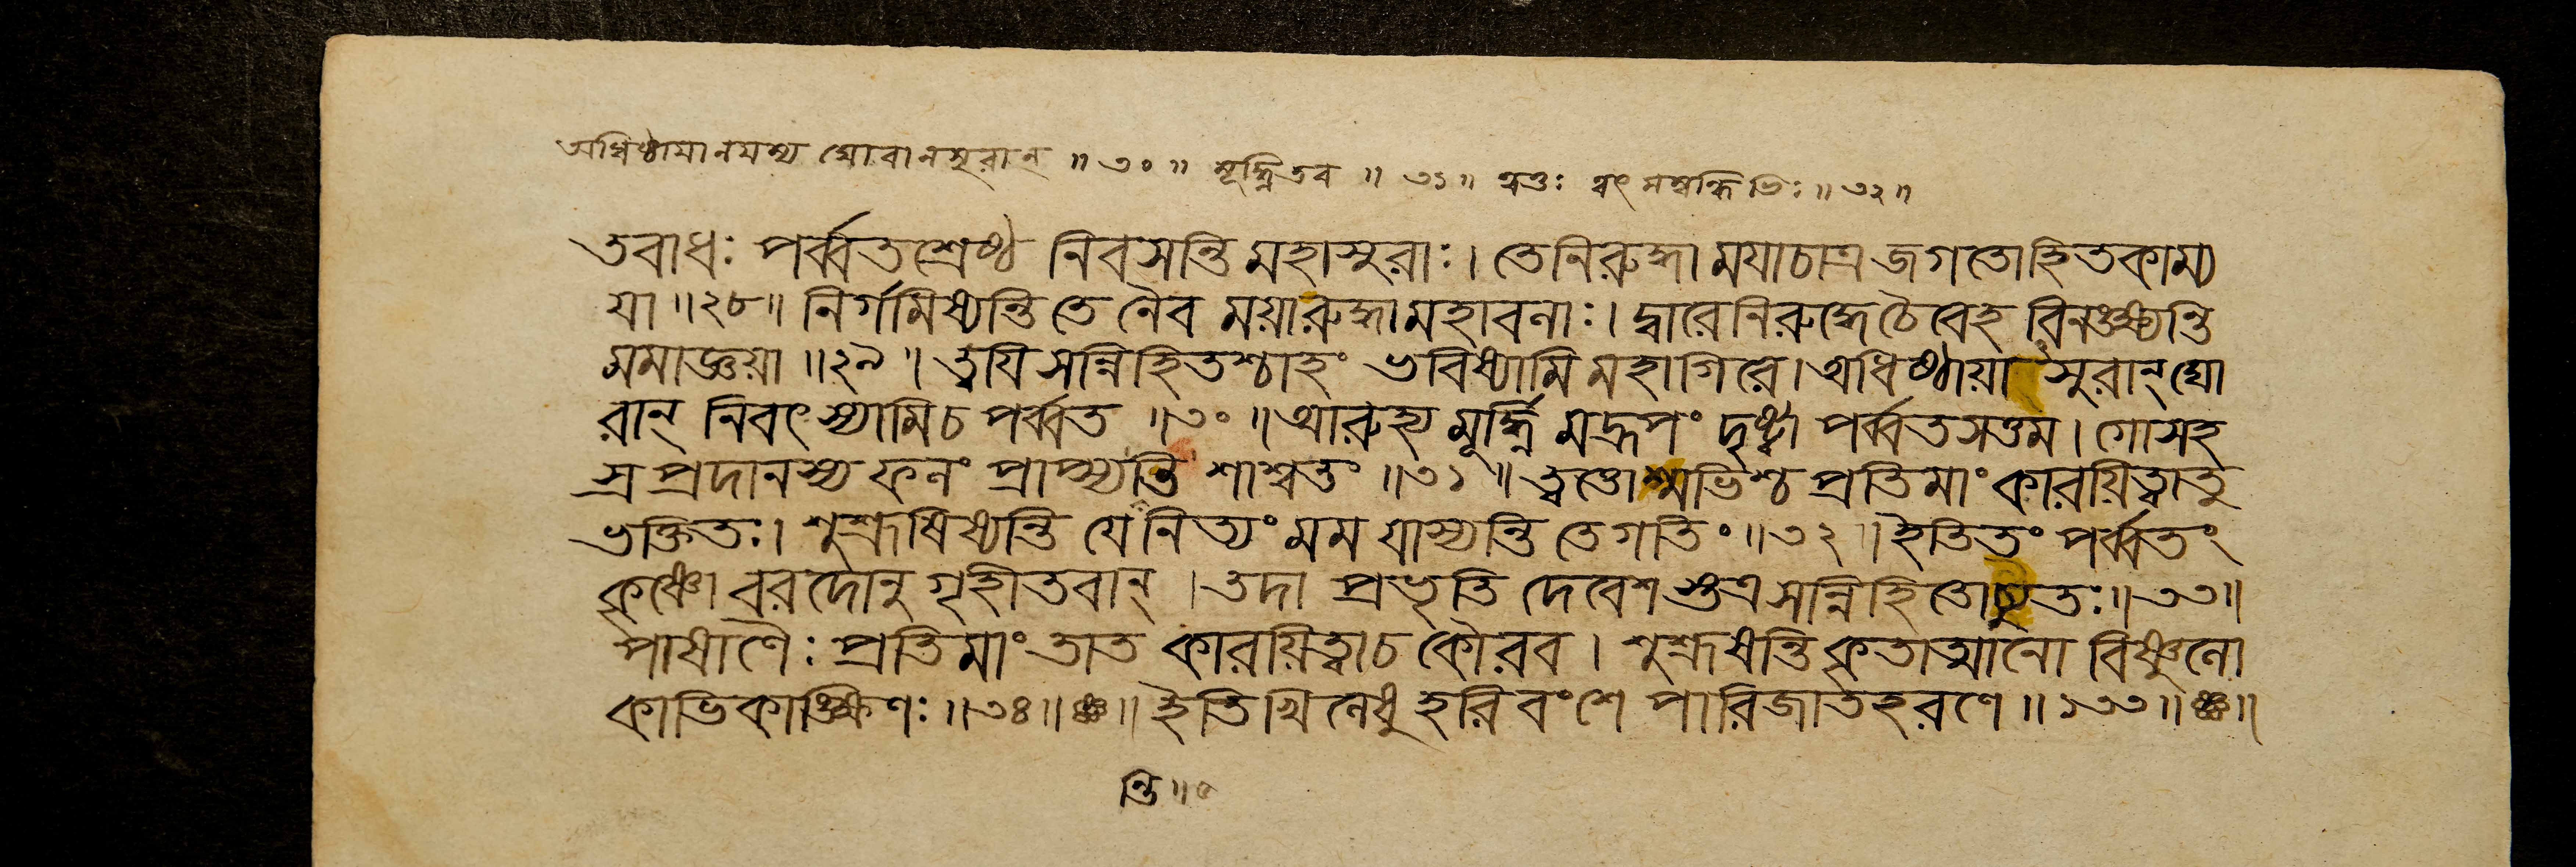 অধিষ্ঠামানমশ্য ঘোরানসুরান্ ॥ ৩০ ॥ মূর্দ্ধ্নিতব ॥ ৩১॥ ত্বত্তঃ ত্বৎ সম্বন্ধিভিঃ ॥ ৩২॥
তবাধঃ পর্ব্বতশ্রেষ্ঠ নিবসন্তি মহাসুরাঃ। তেনিরুদ্ধা ময়াচাত্র জগতোহিতকাম্য
য়া ॥২৮॥ নির্গমিষ্যন্তি তে নৈব ময়ারুদ্ধামহাবলাঃ। দ্বারেনিরুদ্ধেচৈবেহ বিনঙ্ক্ষ্যন্তি
মমাজ্ঞয়া ॥২৯॥ ত্বয়ি সন্নিহিতশ্চাহং ভবিষ্যামি মহাগিরে। অধিষ্ঠায়া সুরান্ঘো
রান্ নিবৎস্যামিচ পর্ব্বত ॥৩০॥ আরুহ্য মূর্দ্ধ্নি মদ্রূপং দৃষ্ট্বা পর্ব্বতসত্তম। গোসহ
স্র প্রদানস্য ফলং প্রাপ্স্যন্তি শাশ্বতং ॥৩১॥ ত্বত্তোশ্মভিশ্চ প্রতিমাং কারয়িত্বাতু
ভক্তিতঃ। শুশ্রূষিষ্যন্তি যেনিত্যং মম যাস্যন্তি তেগতিং ॥৩২॥ ইতিতং পর্ব্বতং
কৃষ্ণো বরদোনু গৃহীতবান্ । তদা প্রভৃতি দেবেশস্তত্র সন্নিহিতোচ্যুতঃ॥৩৩॥
পাষাণৈঃ প্রতিমাং তাত কারয়িত্বাচ কৌরব। শুশ্রূষন্তি কৃতাত্মানো বিষ্ণুলো
কাভিকাঙ্ক্ষিণঃ ॥৩৪॥ ॥ ইতিখিলেষু হরিবংশে পারিজাতহরণে ॥ ১৩৩॥ ॥
ন্তি ॥ ৫